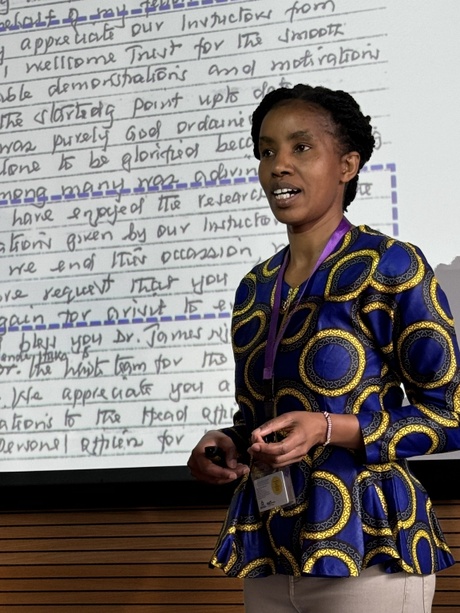 behalf of my fellow
y appreciate our Instuctors from
I wellcome Trust for the smooth
able demonstrations and motivations
the startedg point upto date
was purely God ordained
lone to be glorified beca
mong many was advin
have enjoyed the research
ations given by our Instuctor
we end this occassion
ve request that you
gain for arivit to e
bless you Dr. James Nj
Dr. the whit team for the
. We appreciate you a
ations to the Head offi
Personel officer for